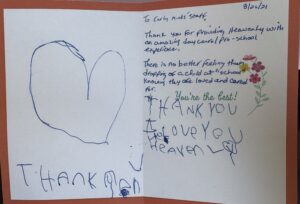 THANK YOU
8/20/21
To Early Kids' Staff,
Thank you for providing Heavenly with
an amazing daycare/Pre-school
experience.
There is no better feeling than
dropping of a child at school
knowing they are loved and cared
for.
You're the best!
THANK YOU
I LOVE YOU
HEAVENLY